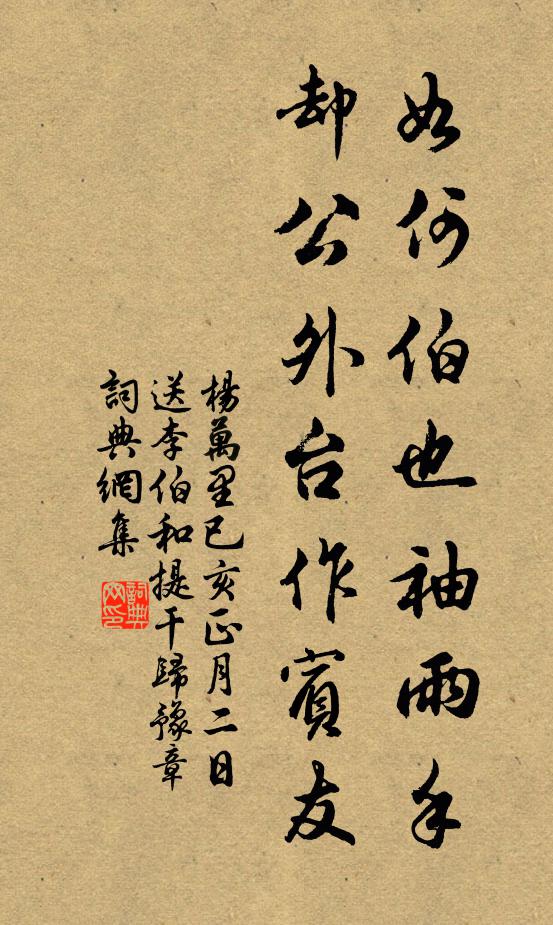 如何伯也袖兩手
却公外台作賓友
楊萬里已亥正月二日
送李伯和提干歸豫章
詞典網集
詞典网印